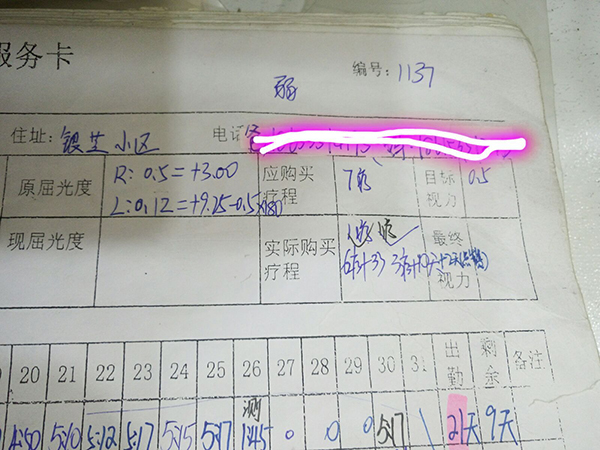 服务卡
编号: 1137
弱
住址: 银芝小区 电话
原屈光度 R: 0.5 = +3.00 应购买疗程 目标视力 0.5
L: 0.12 = +9.25-0.5×180
现屈光度 实际购买疗程 最终视力
20 21 22 23 24 25 26 27 28 29 30 31 出勤 剩余 备注
4:50 5:10 5:12 5:17 5:15 5:17 测 1:45 0 0 0 5:17 \ 21天 9天